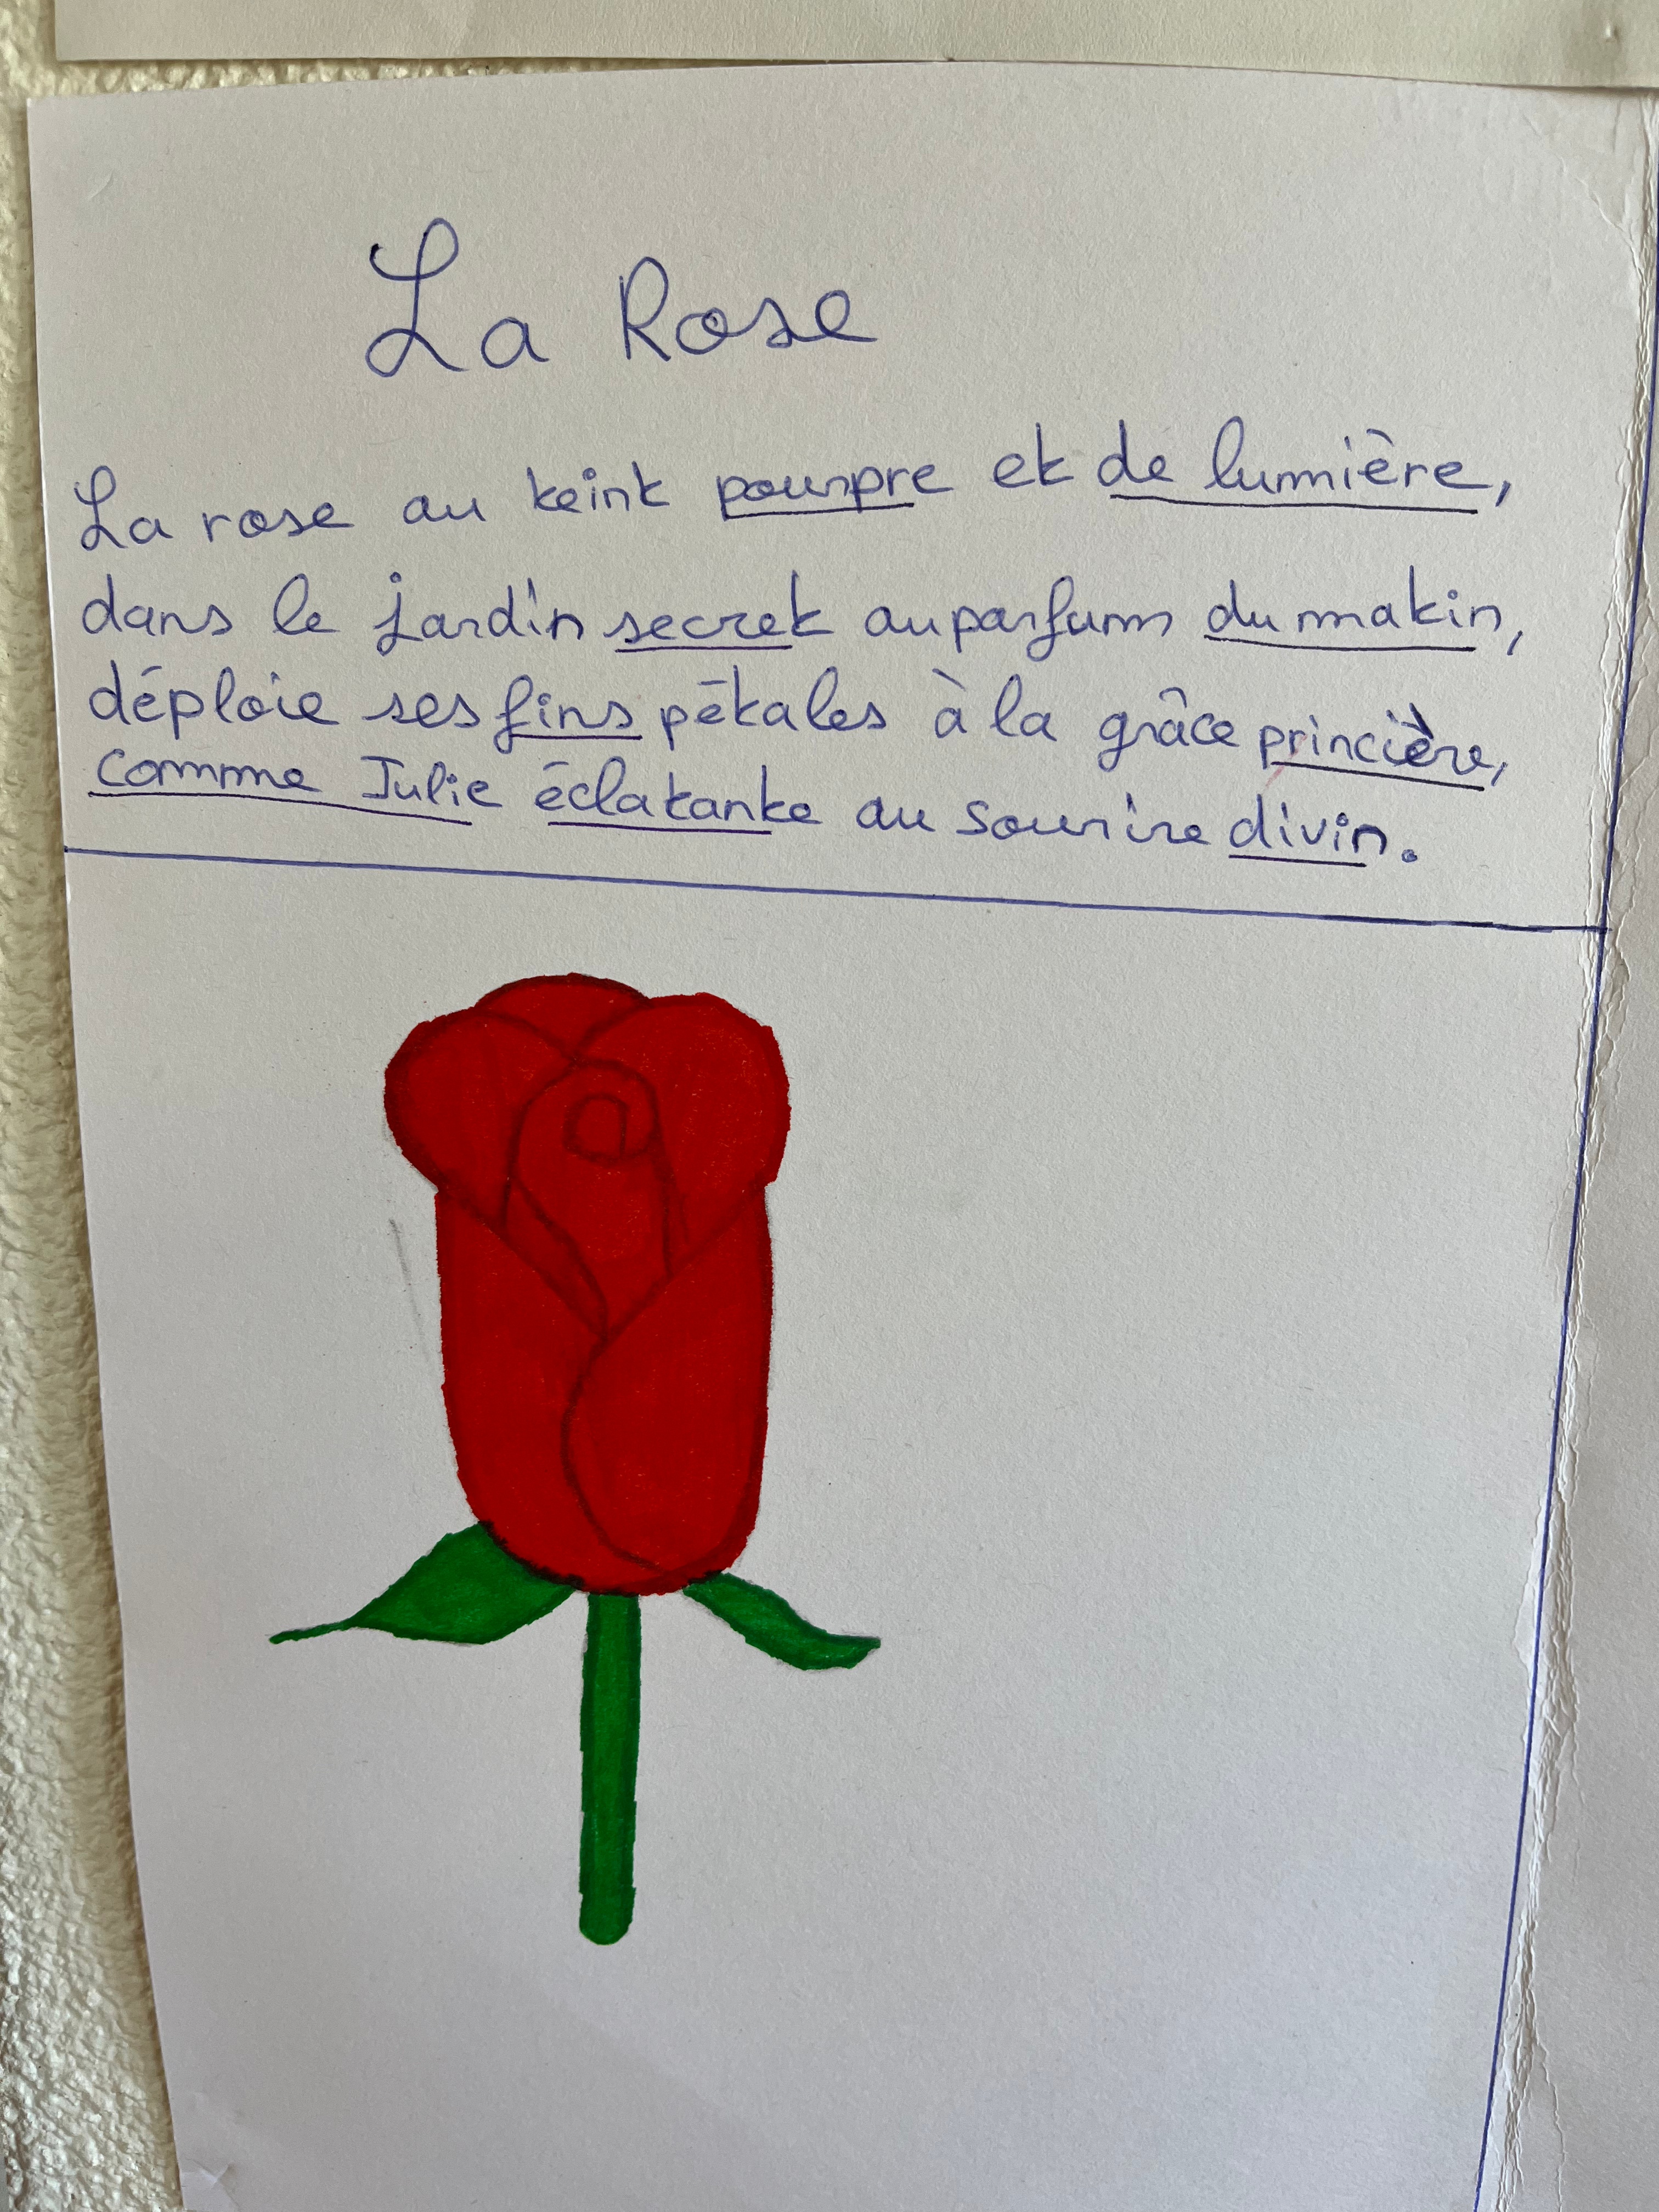 La Rose
La rose au teint pourpre et de lumière,
dans le jardin secret au parfum du matin,
déploie ses fins pétales à la grâce princière,
comme Julie éclatante au sourire divin.